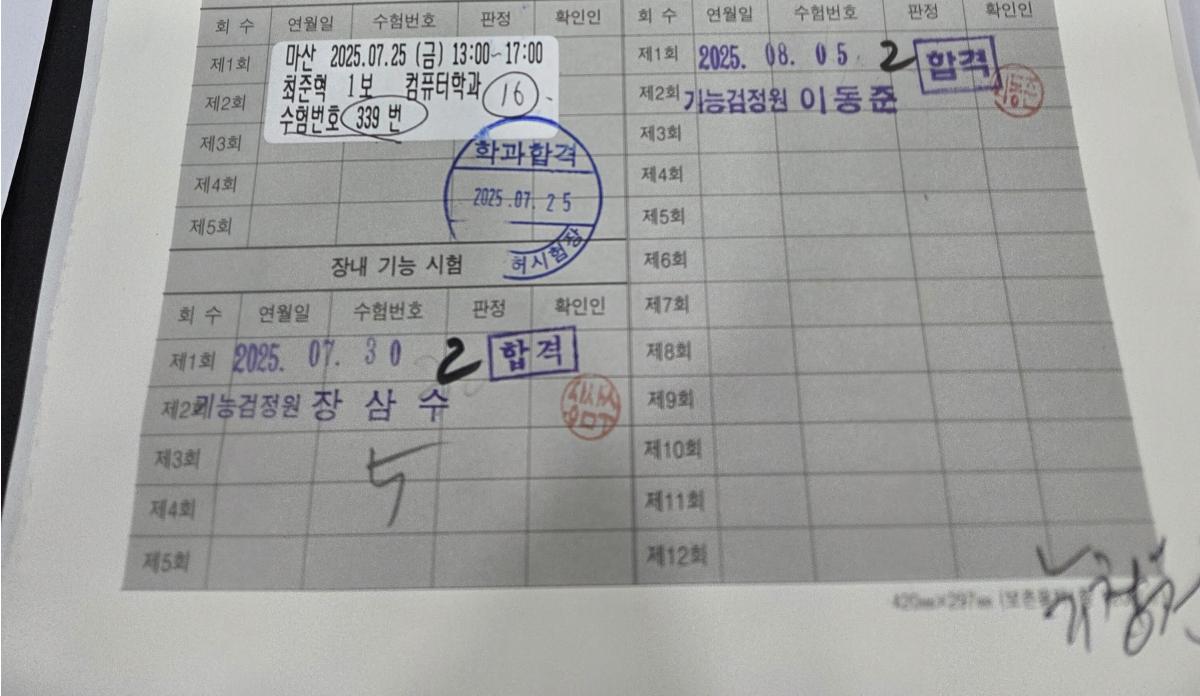 회 수 연월일 수험번호 판정 확인인
제1회
마산 2025.07.25 (금) 13:00~17:00
최준혁 1보 컴퓨터학과 16
수험번호 339 번
제2회
제3회
제4회
제5회
학과합격
2025.07. 25
허시험장
장내 기능 시험
회 수 연월일 수험번호 판정 확인인
제1회 2025. 07. 30 2 합격
제2회 기능검정원 장 삼 수
제3회 5
제4회
제5회
회 수 연월일 수험번호 판정 확인인
제1회 2025. 08. 05. 2 합격
제2회 기능검정원 이동준
제3회
제4회
제5회
제6회
제7회
제8회
제9회
제10회
제11회
제12회
420㎜×297㎜